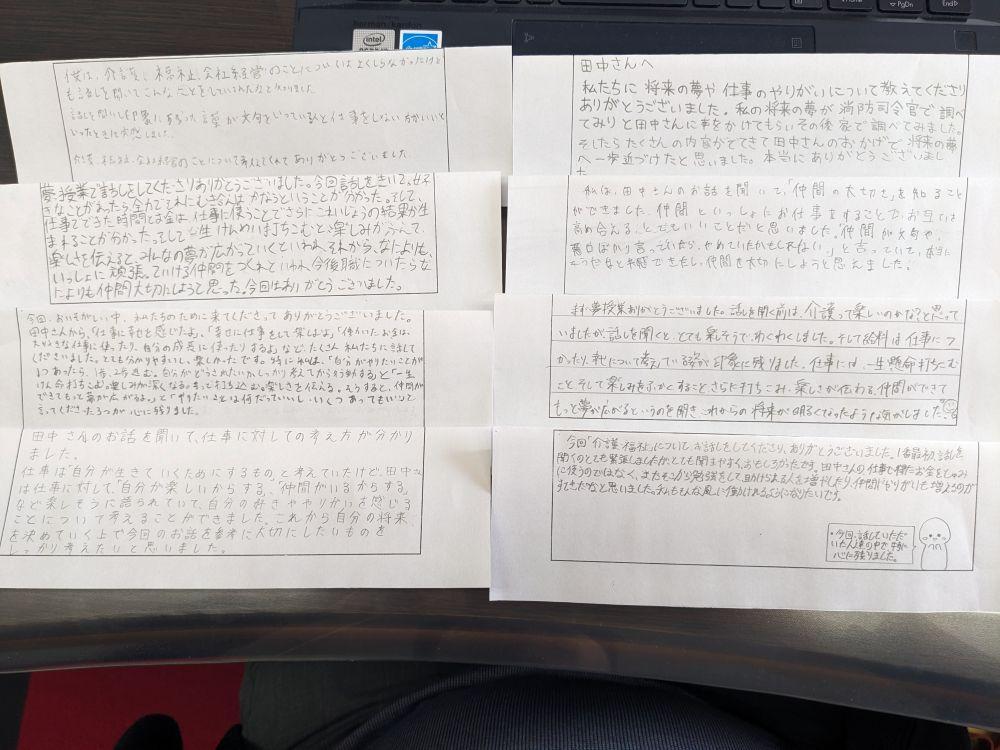 harman/kardon
intel
PgDn
End
僕は、介護、福祉、会社経営のことについてはよくしらなかったけど
も話しを聞いてこんなことをしていたんだなと知りました。
話しを聞いて印象に
いったときに共感しました。
介護、福祉、会社経営のことについて教えてくれてありがとうございました。
夢授業で話しをしてくださりありがとうございました。今回話しをきいて、好
きなことがあったら全力でそれにむきあえばかなうということが分かった。そして、
仕事でできた時間とお金は仕事に使うことでさらにこれいじょうの結果が生
まれることが分かった。そして一生けんめい打ちこむと楽しみがふえて、
楽しさを伝えると、みんなの夢が広がっていくといわれ、それから、なによりも、
いっしょに頑張っていける仲間をつくれといわれ、今後職についたらな
によりも仲間大切にしようと思った。今回はありがとうございました。
今回、おいそがしい中、私たちのために来てくださってありがとうございました。
田中さんから、「仕事に幸せを感じたよ」、「幸せに仕事をして楽しいよ」、「働いたお金は、
大好きな仕事に使ったり、自分の成長に使ったりするよ」など、たくさん私たちに話して
くださいました。とても分かりやすいし、楽しかったです。特に私は、「自分がやりたいことが
1つあったら、1歩、2歩進む。自分がどうされたいか、しっかり考えてから行動する」と「一生
けん命打ちこむ。楽しみが深くなる。もっと打ち込む。楽しさを伝える。そうすると、仲間が
できてもっと夢が広がる。」と「やりたいことは何だっていいし、いくつあってもいい」と
言ってくださった3つが心に残りました。
田中さんのお話を聞いて、仕事に対しての考え方が分かり
ました。
仕事は「自分が生きていくためにするもの」と考えていたけど、田中さん
は仕事に対して、「自分が楽しいからする」、「仲間がいるからする」
など楽しそうに語られていて、自分の好きややりがいを感じる
ことについて考えることができました。これから自分の将来
を決めていく上で今回のお話を参考に大切にしたいものを
しっかり考えたいと思いました。
田中さんへ
私たちに将来の夢や仕事のやりがいについて教えてくださり
ありがとうございました。私の将来の夢が消防司令官で調べ
てみりと田中さんに声をかけてもらいその後家で調べてみました。
そしたらたくさんの内容がでてきて田中さんのおかげで、将来の夢
へ一歩近づけたと思いました。本当にありがとうございまし
た。
私は、田中さんのお話を聞いて、「仲間の大切さ」を知ること
ができました。仲間といっしょにお仕事をすることで、お互いは
高め合える、とてもいいことだと思いました。仲間が文句や、
悪口ばかり言っていたら、やめていたかもしれない。」と言っていて、本当に
そうだなと共感できたし、仲間を大切にしようと思えました。
夢授業ありがとうございました。話しを聞く前は、介護って楽しいのかな?と思って
いましたが、話しを聞くと、とても楽そうでわくわくしました。そして給料は仕事につ
かったり、私について考えている姿が印象に残りました。仕事には、一生懸命打ちこむ
こと、そして楽しみをふかくすること、さらに打ちこみ、楽しさが伝わる、仲間ができて
もっと夢が広がるというのを聞き、これからの将来が明るくなったような気がしました。
今回「介護・福祉」について、お話しをしてくださり、ありがとうございました。1番最初、話しを
聞くのとても緊張しましたが、とても聞きやすく、おもしろかったです。田中さんの仕事で得たお金をじゅみ
に使うのではなく、またそこから勉強をして、助けられる人を増やしたり、仲間とやりがいも増えるのが
すてきだなと思いました。私もそんな風に働けれるようになりたいです。
・今回、話していただ
いた人達の中で、特に
心に残りました。